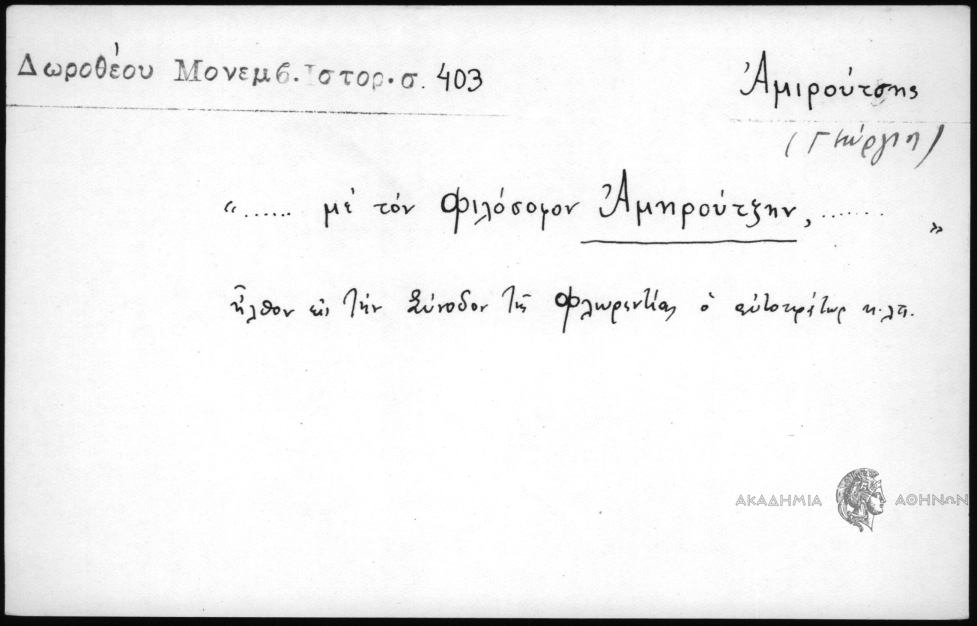 Δωροθέου Μονεμβ. Ἱστορ. σ. 403
Ἀμιρούτσης
(Γεώργιος)
“...... μέ τόν φιλόσοφον Ἀμηρούτζην, ....... ”
ἦλθον εἰς τήν Σύνοδον τῆς Φλωρεντίας ὁ αὐτοκράτωρ κ.λπ.
ΑΚΑΔΗΜΙΑ ΑΘΗΝΩΝ